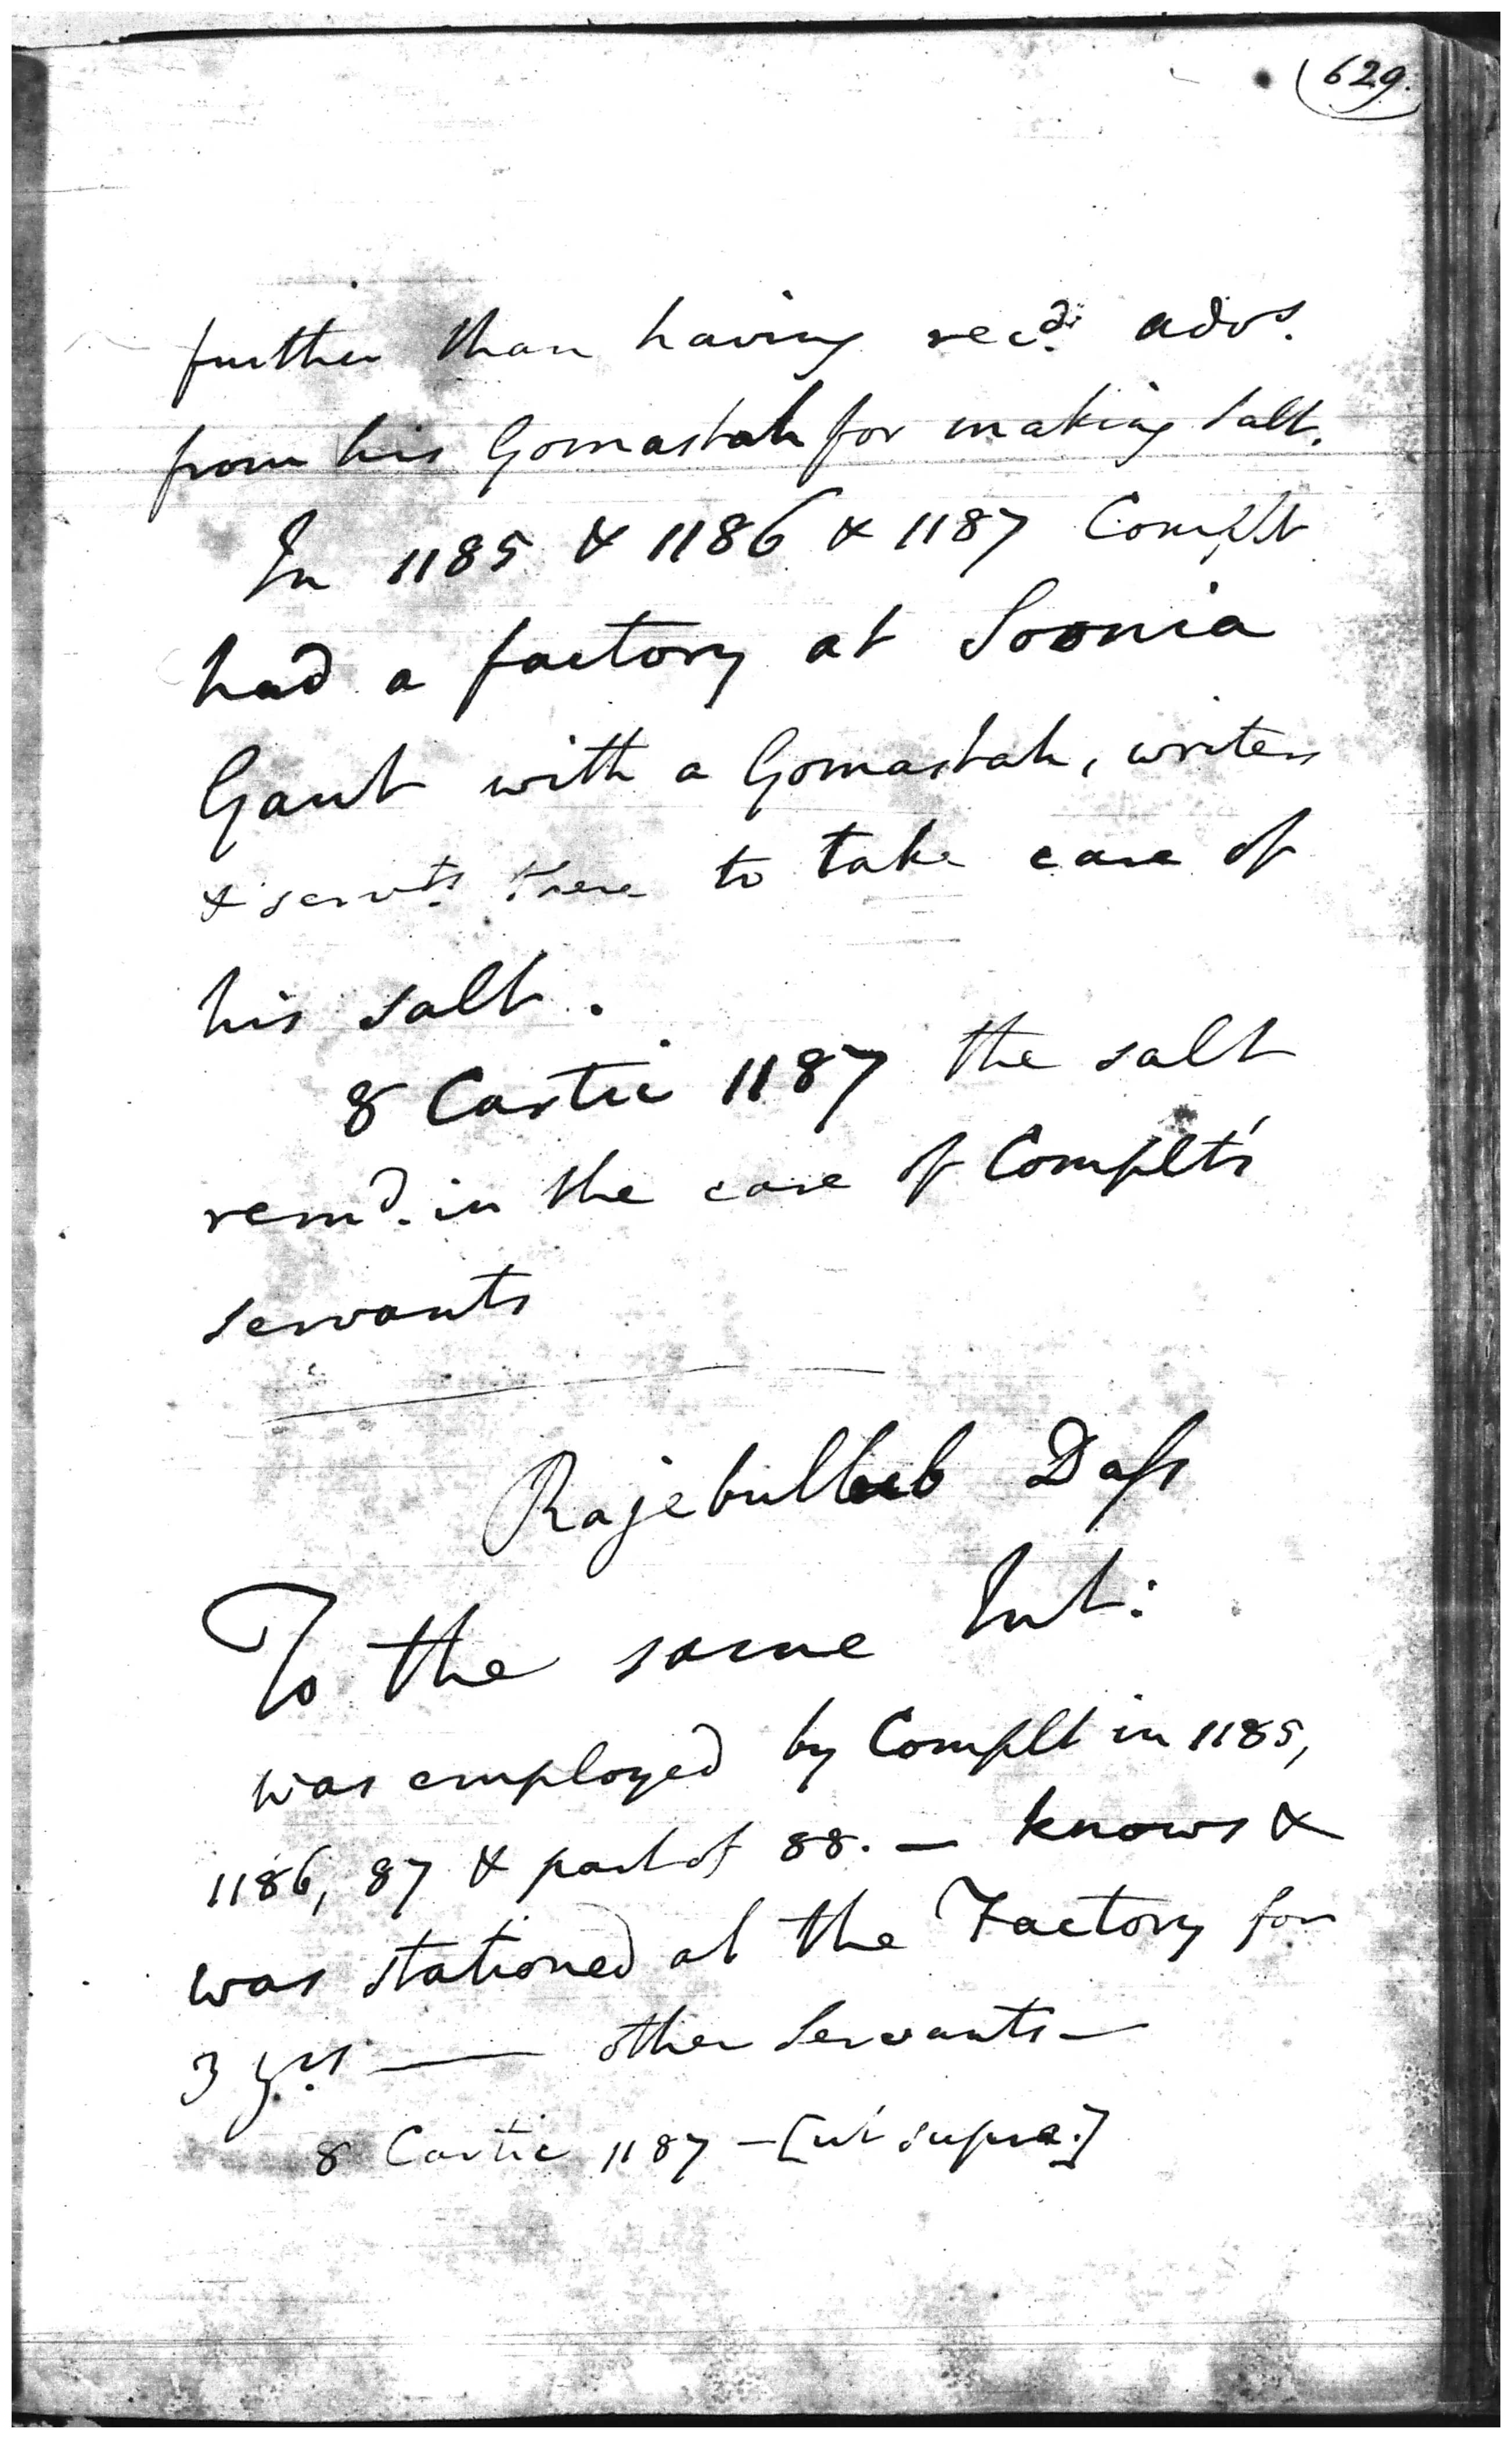 629.
further than having rec^d. adv^s.
from his Gomastah for making salt.
In 1185 & 1186 & 1187 Complt
had a factory at Soonia
Gaut with a Gomastah, writers
& serv^ts. there to take care of
his salt.
8 Cartic 1187 the salt
rem^d. in the care of Complt's
servants
Rajebullub Dass
To the same Int:
was employed by Complt in 1185,
1186, 87 & part of 88. — knows &
was stationed at the Factory for
3 y^rs. — other Servants —
8 Cartic 1187 — [ut supra.]